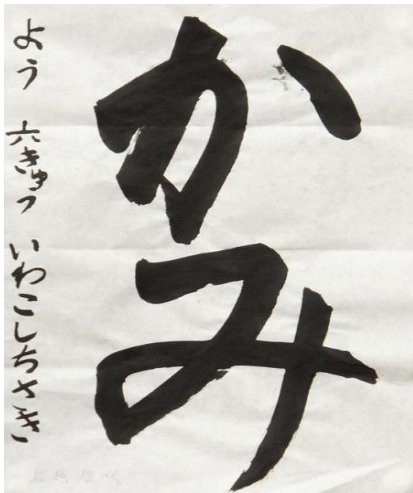 かみ
よう 六きゅう いわこしちさき